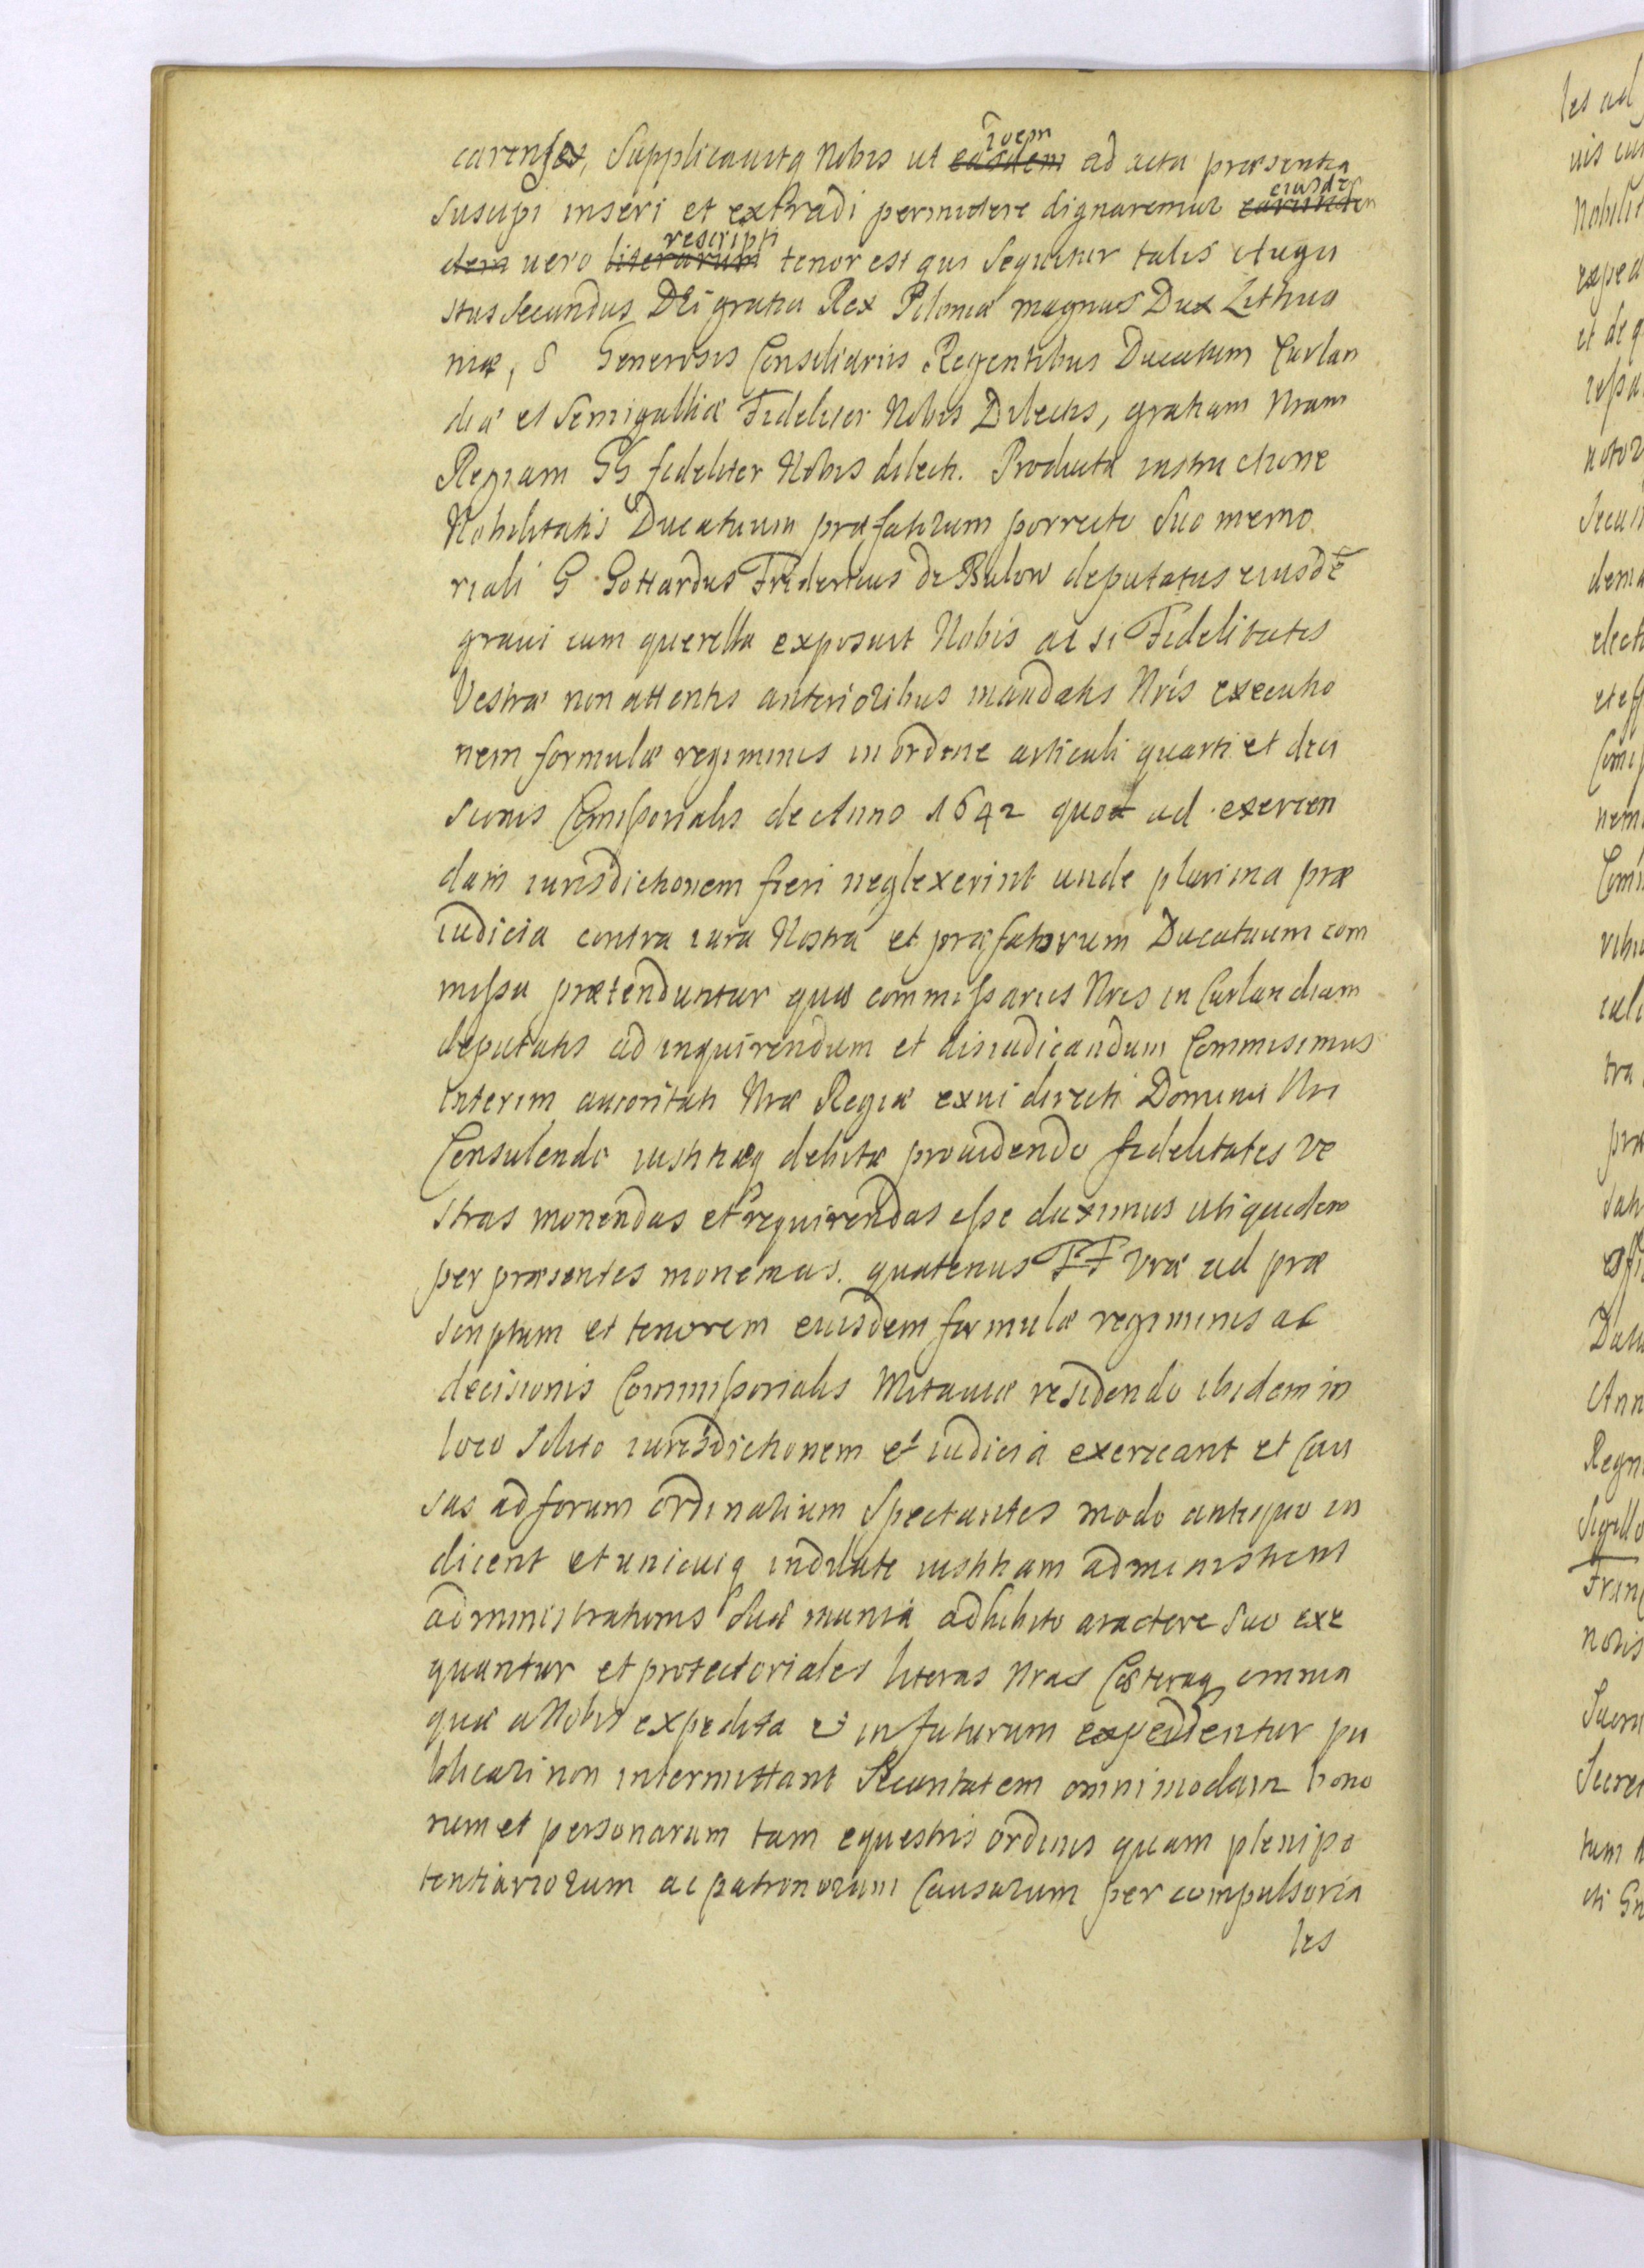 carenses, Supplicavitq Nobis ut easdem idem ad acta præsentia
suscipi inseri et extradi permittere dignaremur earunden eiusdē
dem vero literarum rescripti tenor est qui sequitur talis Augu
stus Secundus DEi gratia Rex Poloniæ magnus Dux Lithua
niæ, & Generosis Consiliariis Regentibus Ducatum Curlan
diæ et Semigalliæ Fideliter Nobis Dilectis, gratiam Nram
Regiam GG fideliter Nobis dilecti. Producta instructione
Nobilitatis Ducatuum præfatorum porrecto suo memo
riali G Gottardus Fridericus de Bulow deputatus eiusdē
gravi cum querella exposuit Nobis ac si Fidelitates
Vestræ non attentis anterioribus mandatis Nris executio
nem formulæ regiminis in ordine articuli quarti et deci
sionis Comissorialis de Anno 1642 quod ad exercen
dam iurisdictionem fieri neglexerint unde plurima præ
iudicia contra iura Nostra et præfatorum Ducatuum com
missa prætenduntur quæ commissariis Nris in Curlandiam
deputatis ad inquirendum et diiudicandum Commisimus
Interim autoritati Nræ Regiæ ex vi directi Dominii Nri
Consulendo iustitiæq debitæ providendo fidelitates ve
stras monendas et requirendas esse duximus uti quidem
per præsentes monemus. quatenus FF Vræ ad præ
scriptum et tenorem eiusdem formulæ regiminis ac
decisionis Commissorialis Mitaviæ residendo ibidem in
loco solito iurisdictionem et iudicia exerceant et Cau
sas ad forum ordinarium spectantes modo antiquo iu
dicent et unicuiq indilate iustitiam administrent
administrationis suæ munia adhibito aractere suo exe
quantur et protectoriales literas Nras Cæteraq omnia
quæ a Nobis expedita et in futurum expedientur pu
blicari non intermittant Securitatem omnimodam bono
rum et personarum tam equestris ordinis quam plenipo
tentiariorum ac patronorum Causarum per compulsoria
les